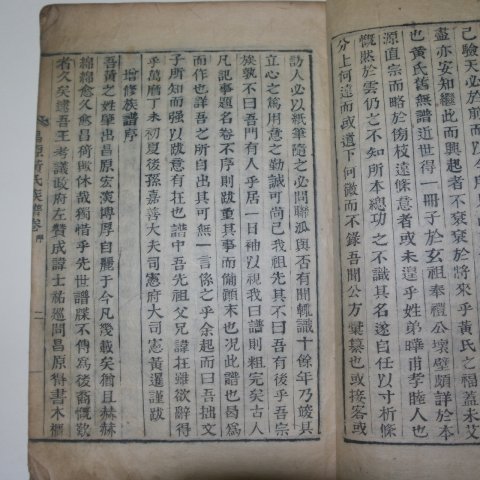 己驗天必
盡亦安知繼此而興起者不衰衰於將來乎黃氏之福蓋未艾
也黃氏舊無譜近世得一冊子於玄祖奉禮公壞壁頗詳於本
源直宗而略於傍枝遠條意者或未遑乎姓弟曄甫孝睦人也
慨然於雲仍之不知所本總功之不識其名遂自任以寸析條
分上何遠而或遺下何微而不錄吾聞公方彙纂也或接客或
訪人必以紙筆隨之必問聯派與否有聞輒識十餘年乃竣其
立心之篤用意之勤誠可尚已我祖先其不曰吾有後乎吾宗
族孰不曰吾門有人乎居一日袖以視我曰譜則粗完矣古人
凡記事題名卷不序則跋重其事而備顚末也況此譜也曷爲
而作也詳吾之所自出其可無一言係之乎余起而曰吾拙文
子所知而强以跋意有在也譜中吾先祖父兄諱在雖欲辭得
乎萬曆丁未初夏後孫嘉善大夫司憲府大司憲黃暹謹跋
增修族譜序
吾黃之姓肇出昌原宏漢博厚自麗于今凡幾載矣猶且赫赫
綿綿愈久愈昌猗歟休哉獨惜乎先世譜牒不傳為後裔慨歎
者久矣逮吾王考議政府左贊成諱士祐巡問昌原得書本櫃
昌原黃氏族譜卷